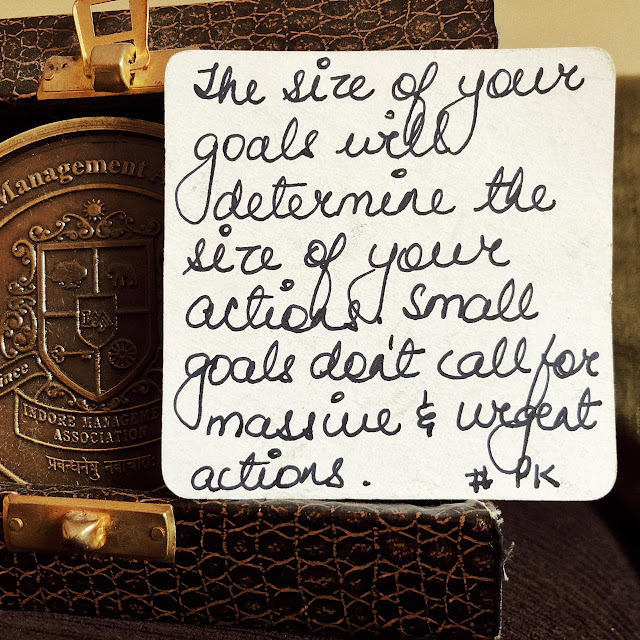 The size of your
goals will
determine the
size of your
actions. Small
goals don't call for
massive & urgent
actions.
# PK
Management
INDORE MANAGEME
ASSOCIATION